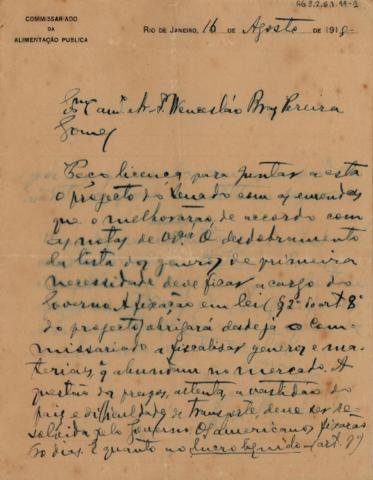 COMMISSARIADO
DA
ALIMENTAÇÃO PUBLICA
RIO DE JANEIRO, 16 DE Agosto DE 1918
Wenceslão Braz Pereira
Gomes
Peço licença para juntar a esta
o projecto do Senado com as emendas
que o melhorarão de accordo com
as notas de O desdobramento
da lista dos generos de primeira
necessidade deve ficar a cargo do
Governo. A fixação em lei (§ 2º do art 8º
do projecto) obrigará desde já o Com-
missariado a fiscalisar generos e ma-
teriaes q abundam no mercado. A
questão de prazos, attenta a vastidão do
paiz e difficuldade de transporte, deve ser re-
solvida pelo Governo. Os americanos fixarão
dias. E quanto ao lucro liquido - (art.